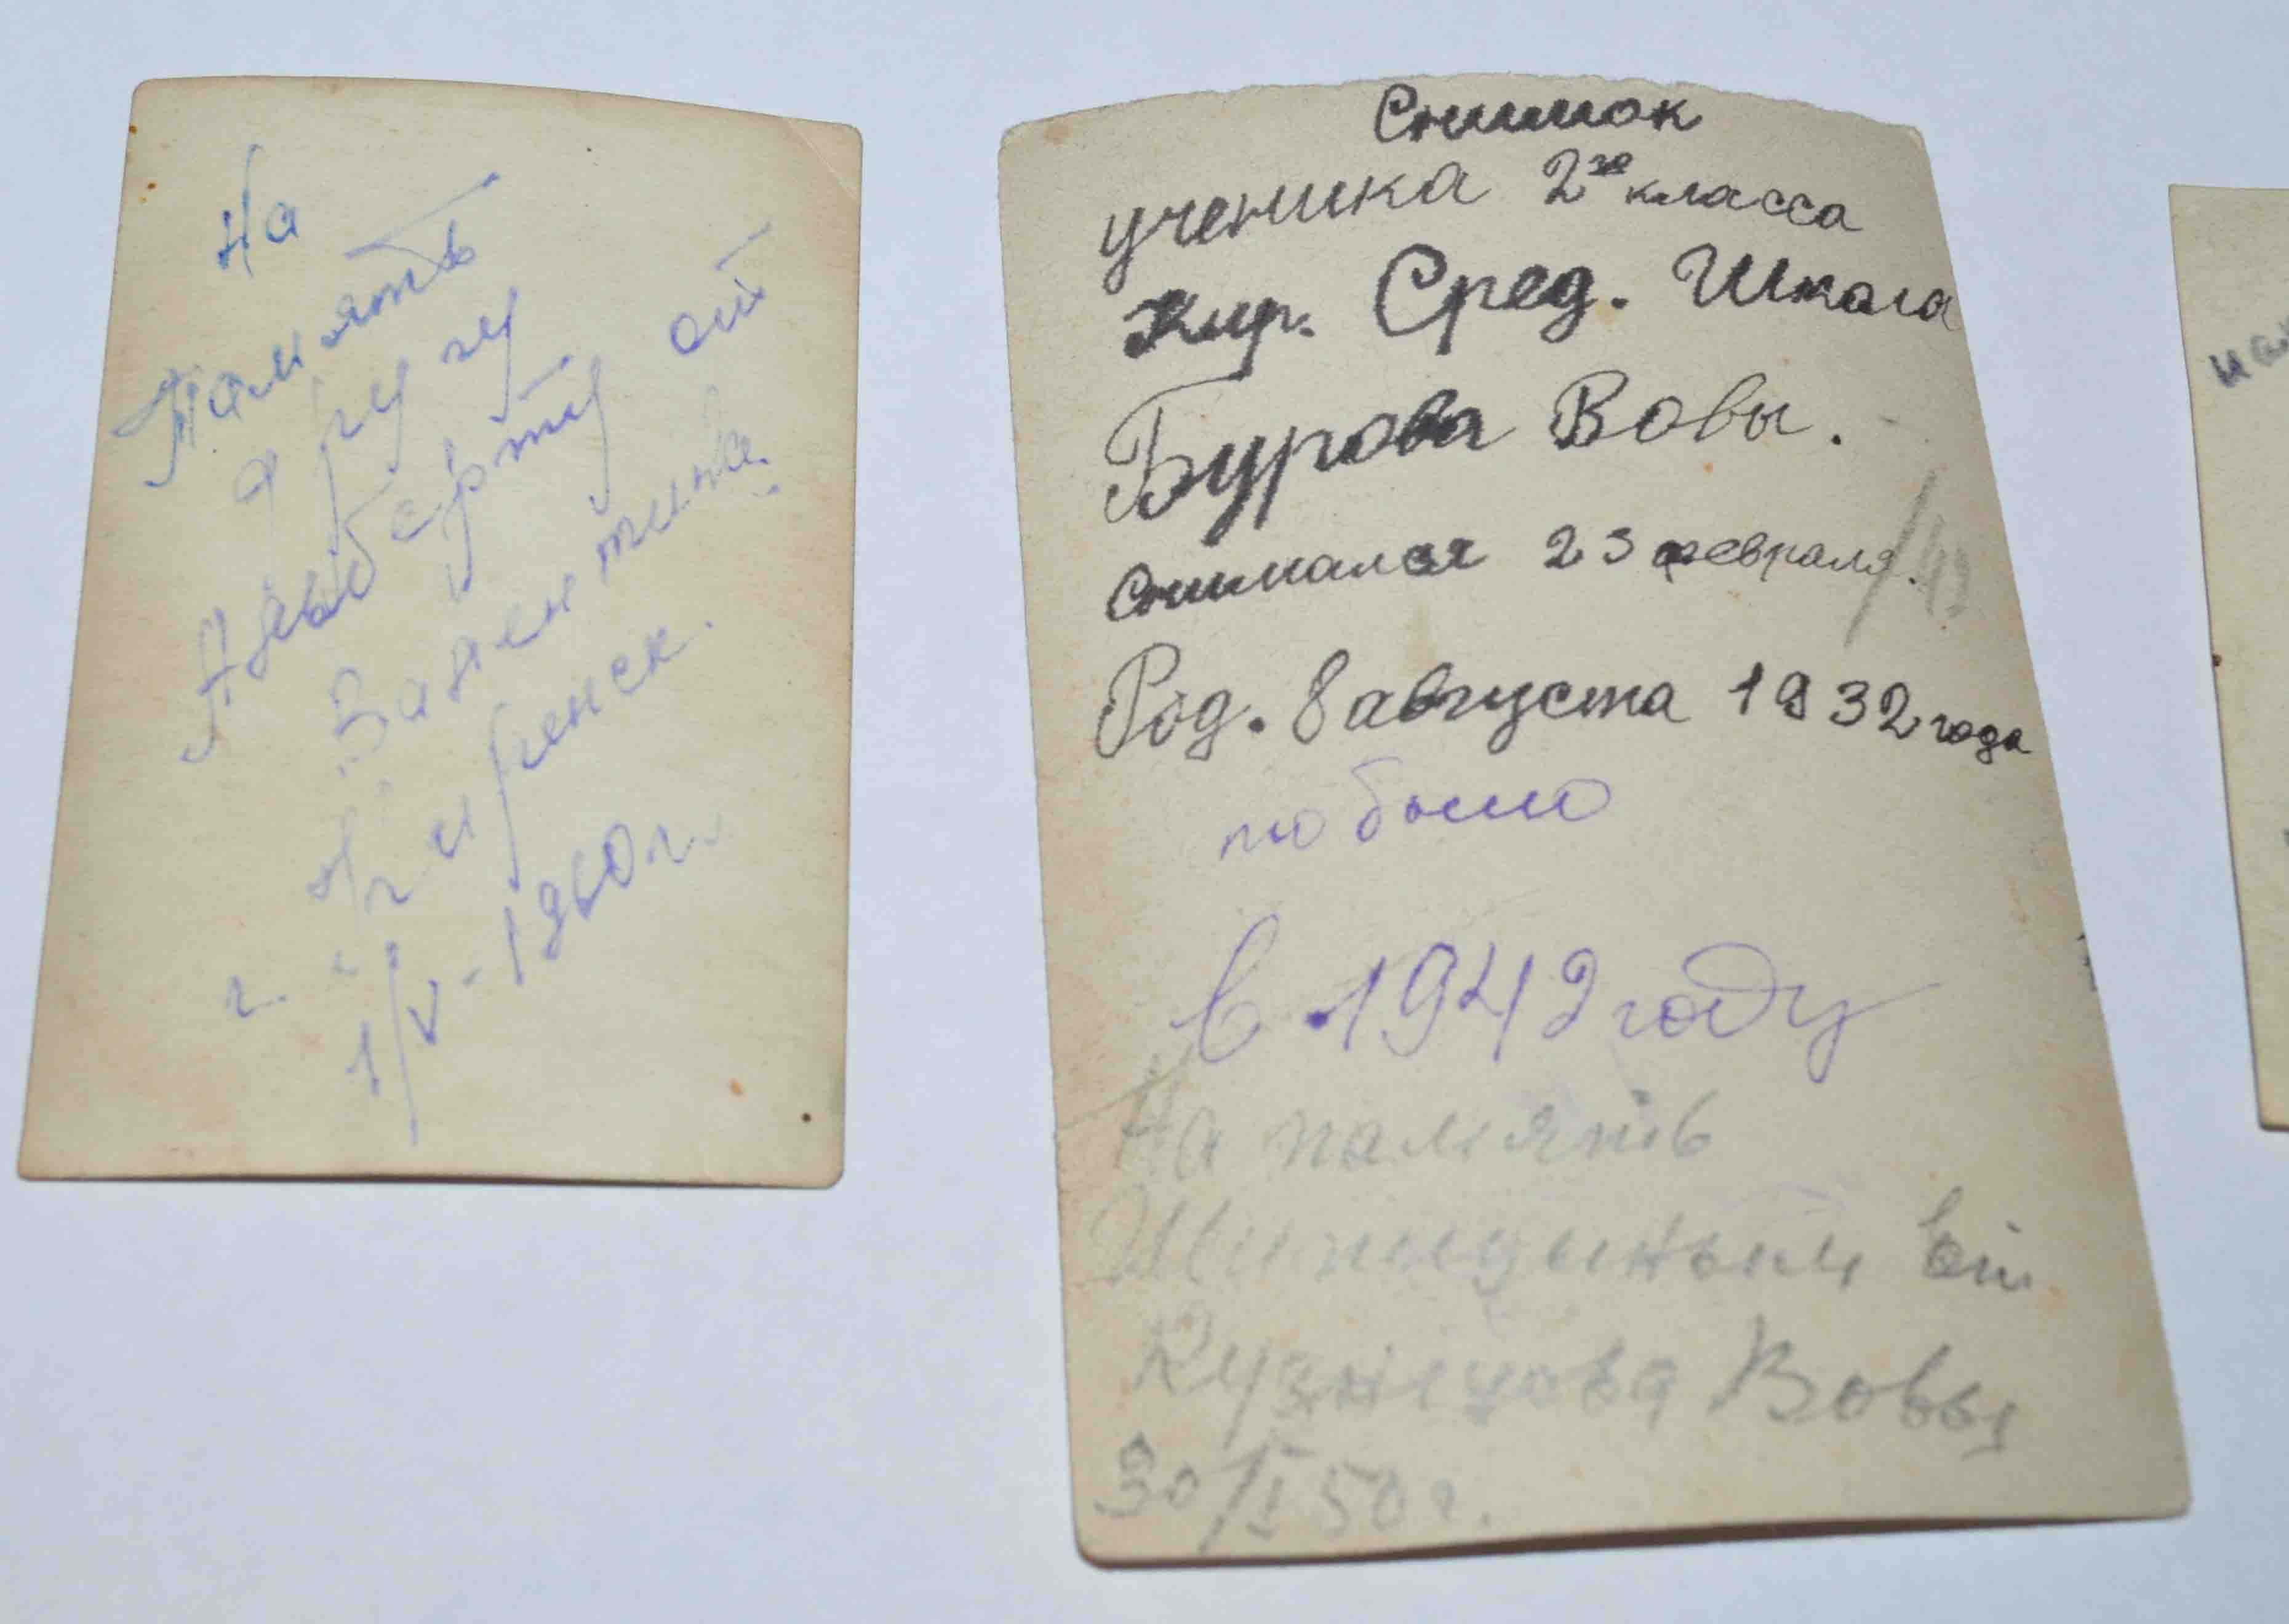 На
Память
другу
Альберту от
Валентина.
г. Киренск.
1/V-1960 г.
Снимок
ученика 2го класса
Кир. Сред. Школа
Бурова Вовы.
Снимался 23 февраля.
Род. 8 августа 1932 года
то было
в 1942 году
На память
от
Кузнецова Вовы
30/I 50 г.